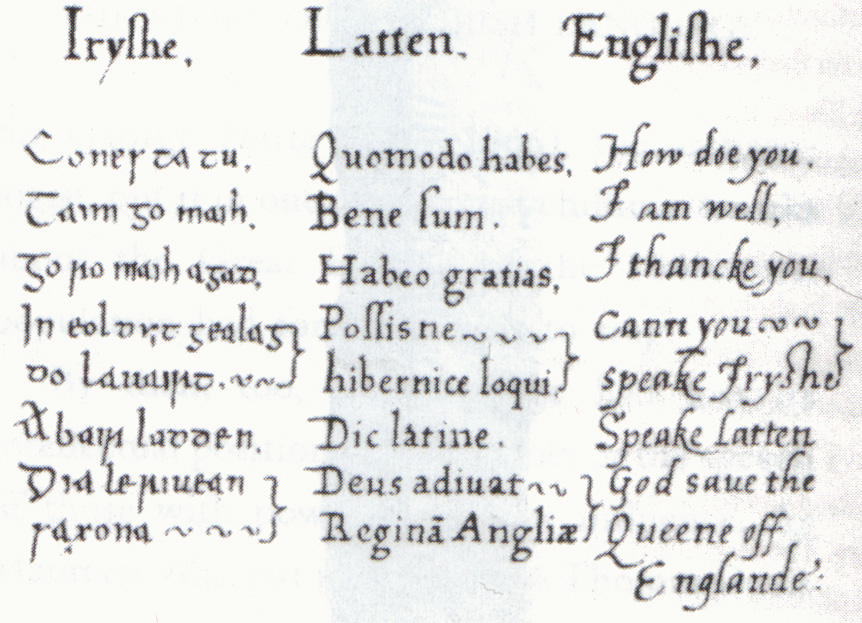 Iryſhe, Latten. Engliſhe,
Cones ta tu. Quomodo habes, How doe you.
Taim go maih. Bene ſum. I am well,
Go ro maih agad. Habeo gratias, I thancke you,
In eoldyt gealag Poſſis ne ~~~~ Cann you ~~
do lauairt. ~~ hibernice loqui, speake Iryshe
Abair ladden Dic latine. Speake Latten
Dia le riuean Deus adiuat ~~ God saue the
saxona ~~~~ Reginā Angliæ Queene off
Englande: